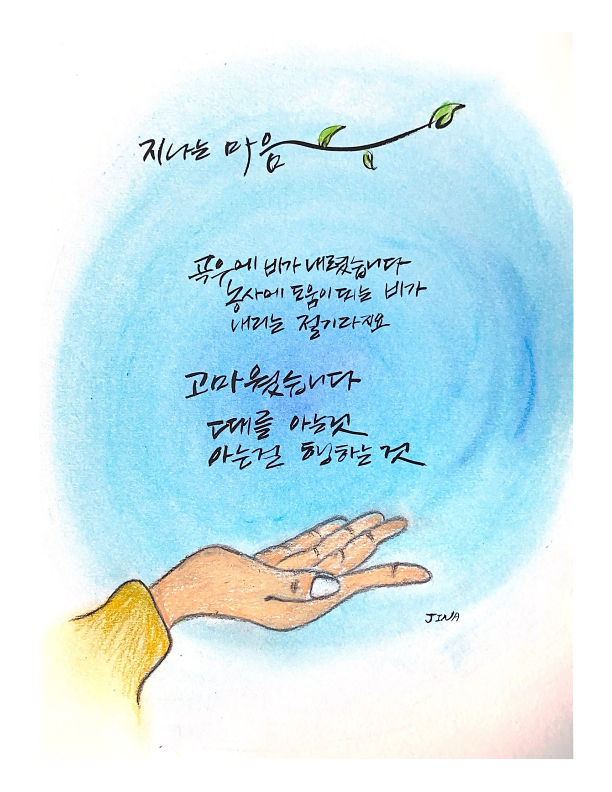 지나는 마음
곡우에 비가 내렸습니다
농사에 도움이 되는 비가
내리는 절기라지요
고마웠습니다
때를 아는것
아는걸 행하는 것
JINA